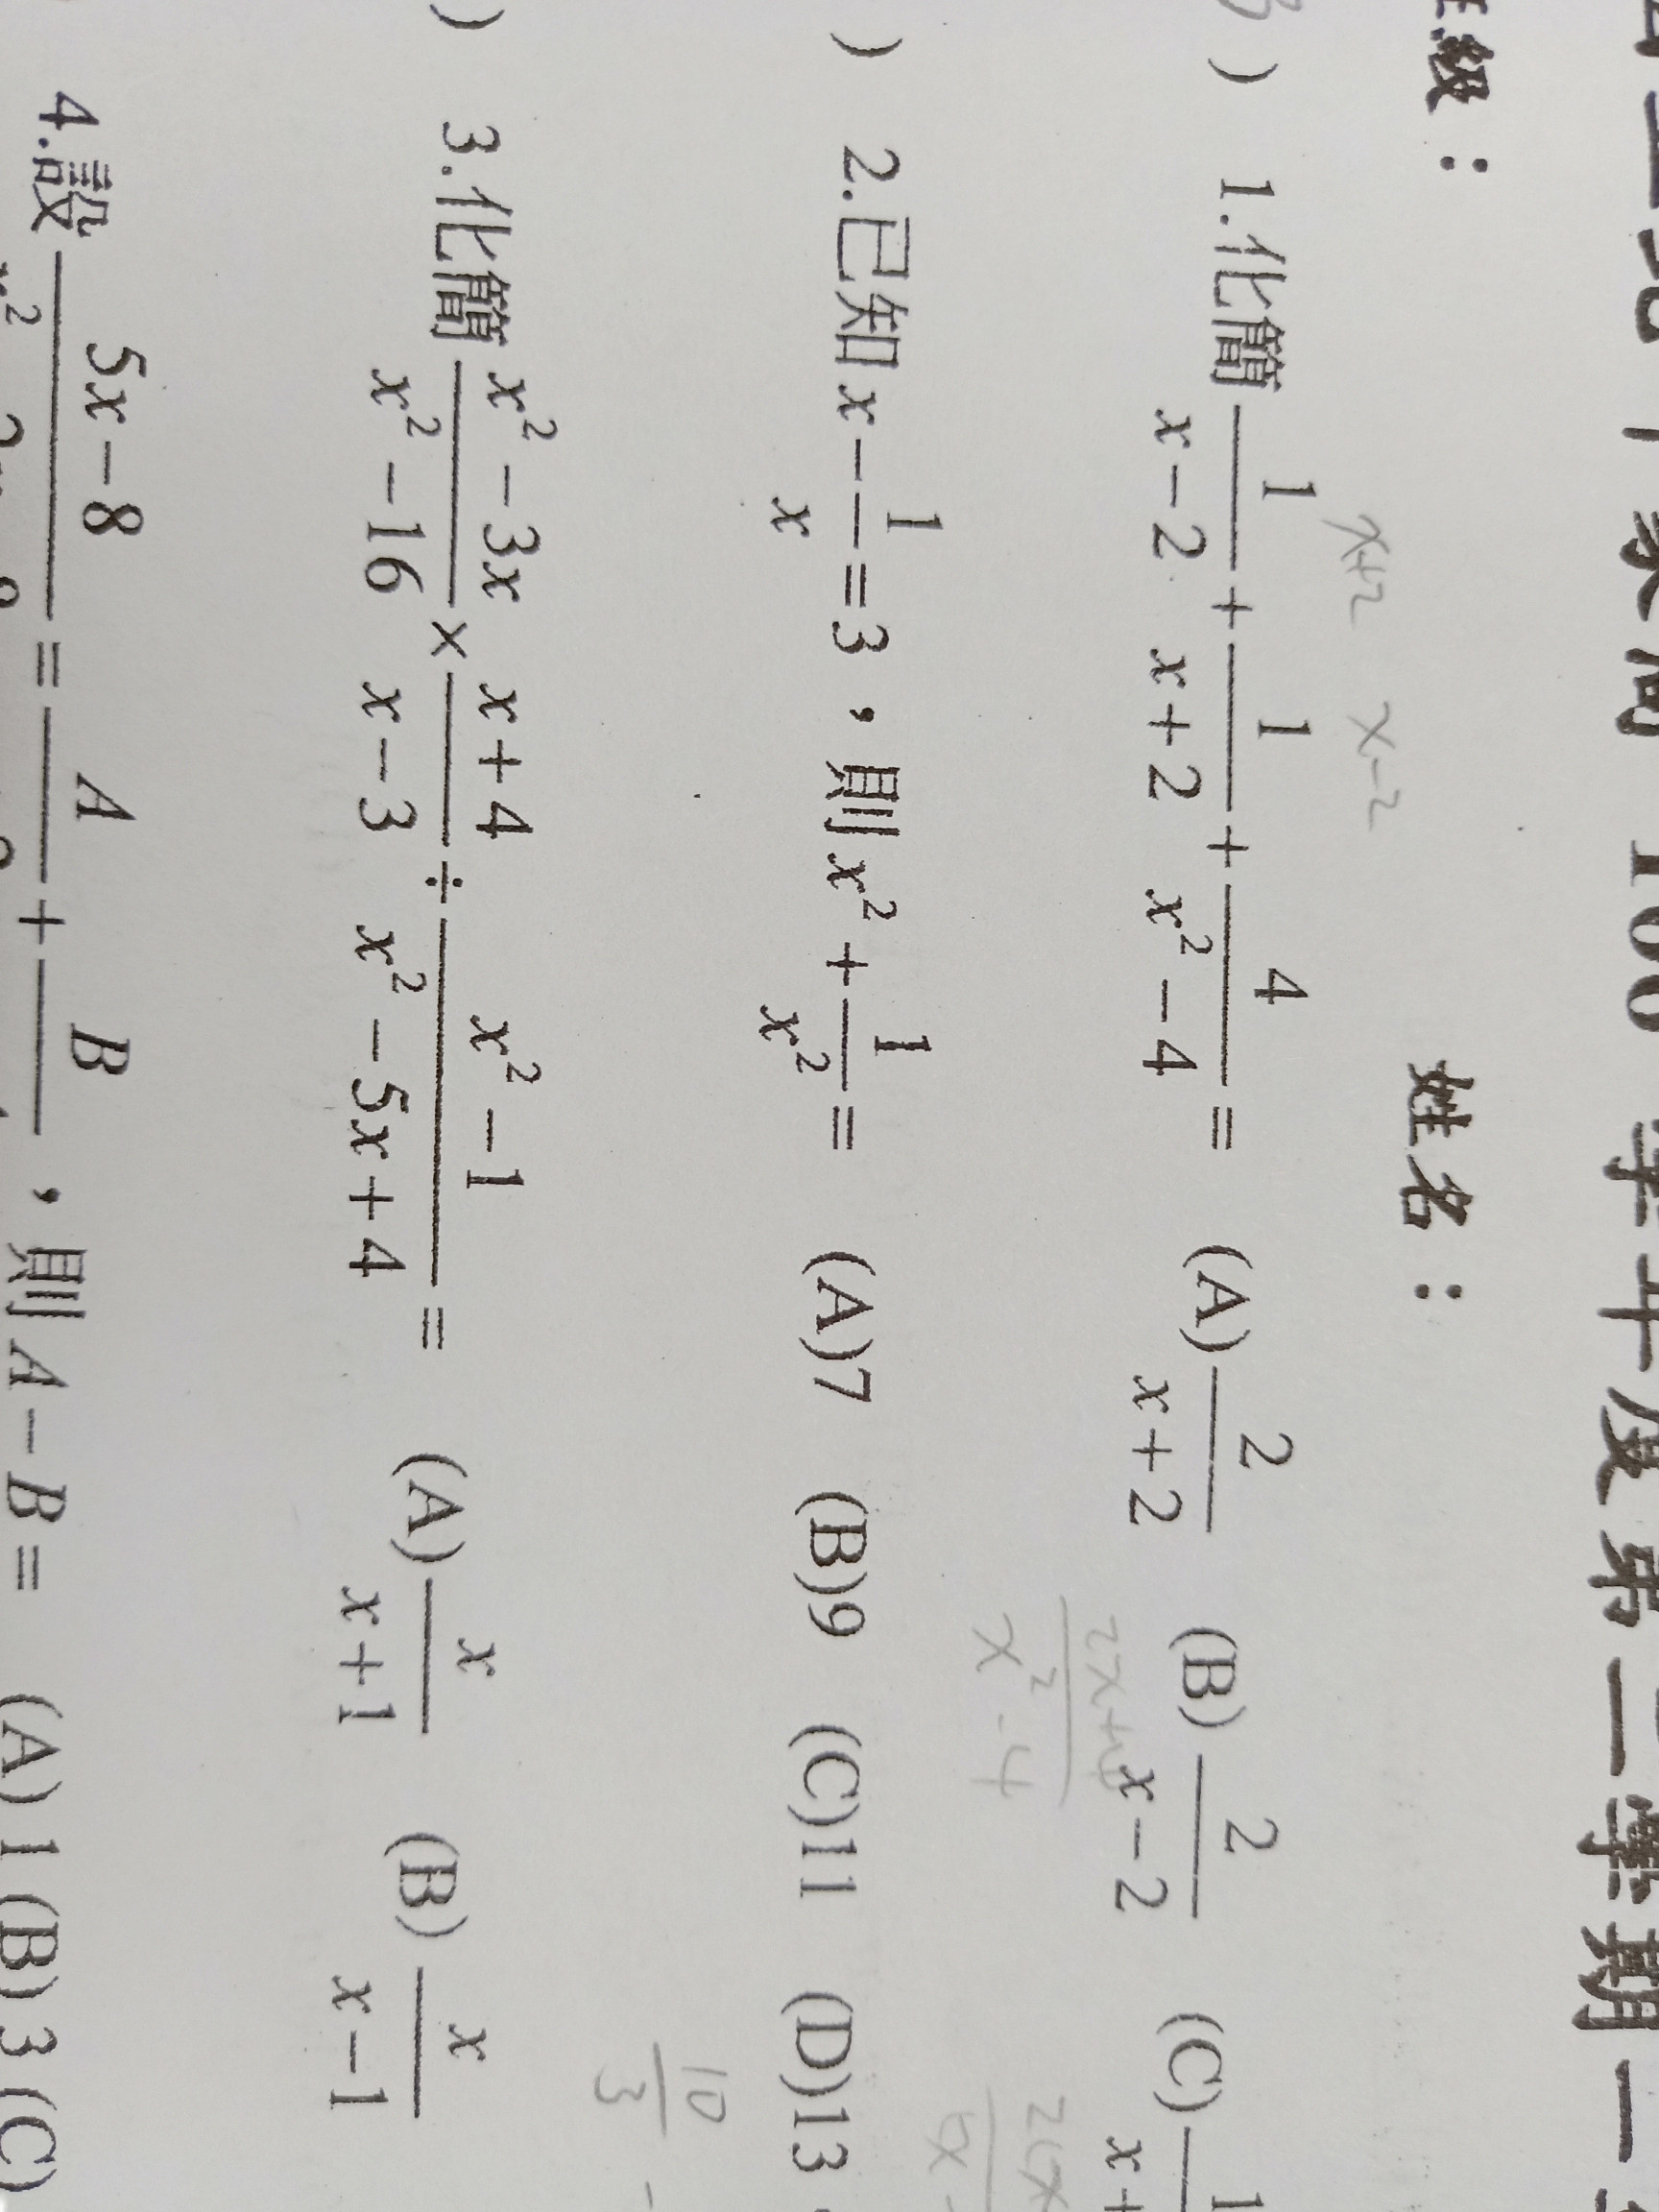 100 學年度第二學期
級： 姓名：
x+2 x-2
) 1.化簡 \frac{1}{x-2}+\frac{1}{x+2}+\frac{4}{x^2-4}= (A)\frac{2}{x+2} (B)\frac{2}{x-2} (C)
\frac{2x+4}{x^2-4}
) 2.已知 x-\frac{1}{x}=3，則 x^2+\frac{1}{x^2}= (A)7 (B)9 (C)11 (D)13
\frac{10}{3}
) 3.化簡 \frac{x^2-3x}{x^2-16}×\frac{x+4}{x-3}÷\frac{x^2-1}{x^2-5x+4}= (A)\frac{x}{x+1} (B)\frac{x}{x-1}
4.設 5x-8 = A + B ，則 A-B= (A) 1 (B) 3 (C)